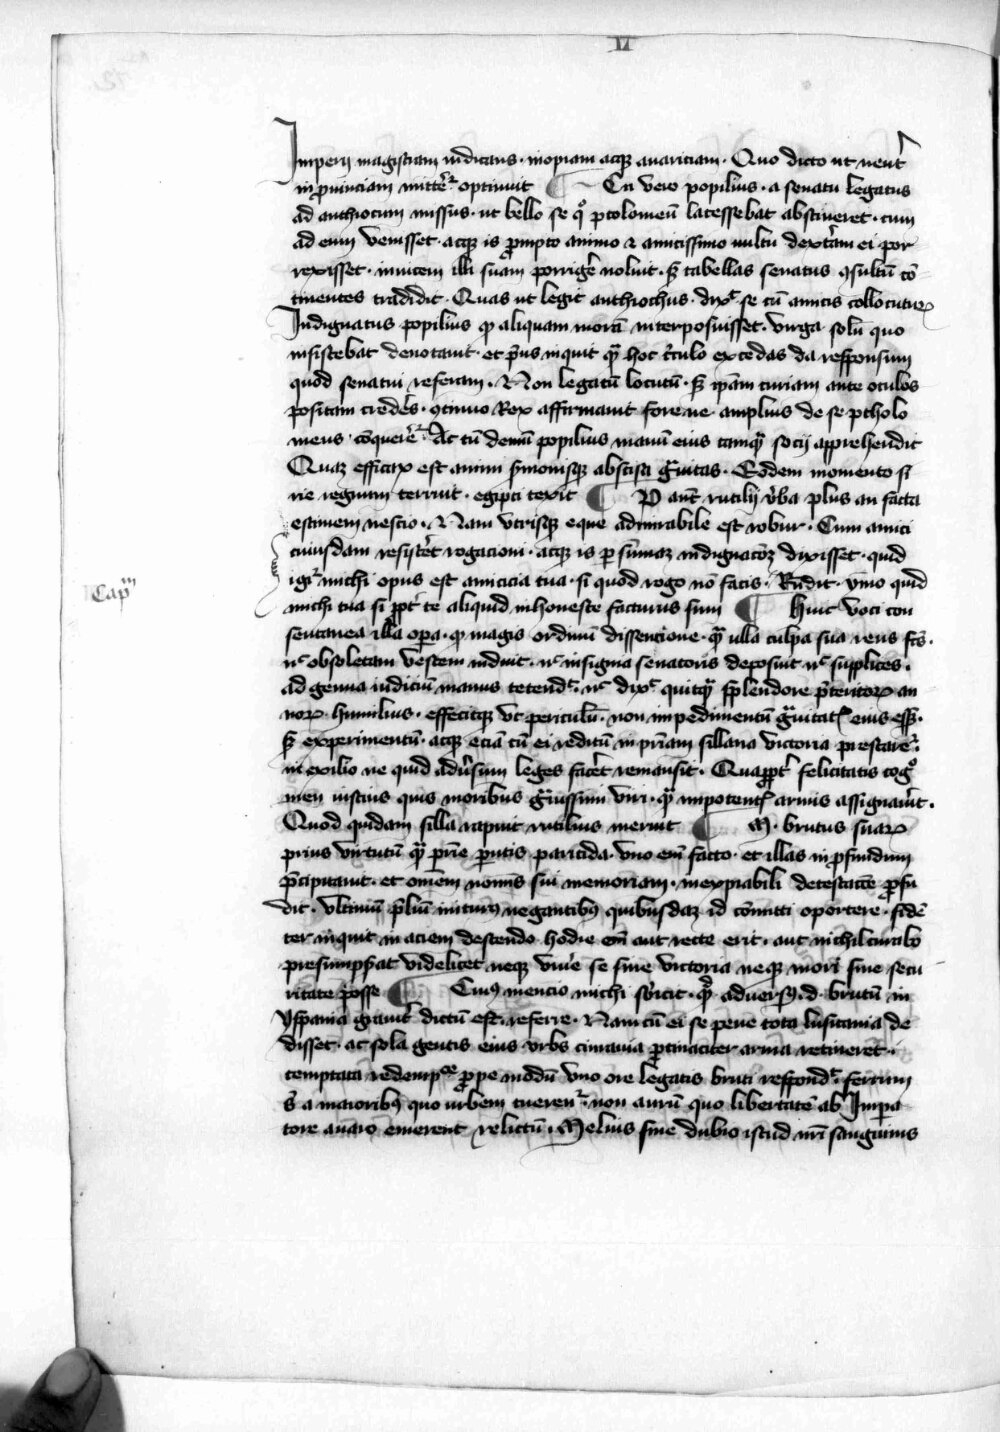 VI
Imperij magistram iudicans · inopiam atqꝫ auariciam · Quo dicto ut neut̉
in prouinciam mitter̉ optinuit ¶ Cn vero popilius · a senatu legatus
ad anthiocum missus · ut bello se qͦ ptolomeū lacessebat abstineret · cum
ad eum venisset · atqꝫ is prompto animo ⁊ amicissimo uultu dextram ei por
rexisset · inuicem illi suam porriger̉ noluit · sꝫ tabellas senatus ꝯsultū cō
tinentes tradidit · Quas ut legit anthiochus · dixͭ se cū amicis collocuturꝫ
Indignatus popilius ꝙ aliquam morā interposuisset · virga solū quo
insistebat denotauit · et pͥus inquit qͣꝫ hoc cͥculo excedas da responsum
quod senatui referam · Non legatū locutū · sꝫ ipām curiam ante oculos
positam crederes · ꝯtinuo Rex affirmauit fore ne amplius de se ptholo
meus · cōquerer̉ · Ac tū demū popilius manū eius tamqͣꝫ socij apprehendit
Quaꝫ efficax est animi sermonisqꝫ abscisa gͣuitas · Eodem momento si
rie regnum terruit · egipti texit ¶ P aut̄ rutilij v̉ba plus an facta
estimem nescio · Nam vtrisqꝫ eque admirabile est robur · Cum amici
cuiusdam resister̉t rogacioni · atqꝫ is per sūmaꝫ indignacōꝫ dixisset · quid
Capᵐ
igͥ michi opus est amicicia tua · si quod rogo nō facis · Rn̄dit · ymo quid
michi tua si ppt̉ te aliquid inhoneste facturus sum ¶ Huic voci con
sentanea illa opera · ꝙ magis ordinū dissentione · qͣꝫ ulla culpa sua reus fcūs ·
nͨ obsoletam vestem induit · nͨ insignia senatoris deposuit nͨ supplices ·
ad genua iudiciū manus tetendͭ · nͨ dixͭ quitqͣꝫ splendore p̄teritorꝫ an
norꝫ humilius · effecitqꝫ vt periculū · non impedimentū gͣuitatꝭ eius essꝫ ·
sꝫ experimentū · atqꝫ eciā cū ei reditū in pr̄iam sillana victoria prestarer̉ ·
in exilio ne quid adūsum leges facer̉t remansit · Quappt̉ felicitatis cogͦ
men iustius quis moribus gͣuissimi viri · qͣꝫ impotentꝭ armis assignauer̉t ·
Quod quidam silla rapuit rutilius meruit ¶ M · brutus suarꝫ
prius virtutū qͣꝫ pr̄ie parentis paricida · vno em̄ facto · et illas in profundum
p̄cipitauit · et om̄em nomīs sui memoriam · inexpiabili detestacōe profu
dit · vltimū p̄liū initurꝰ negantibꝰ quibusdaꝫ id cōmitti oportere · fidē
ter inquit in aciem descendo · hodie em̄ aut recte erit · aut nichil curabo
presumpserat videlicet neqꝫ viuere se sine victoria neqꝫ mori sine secu
ritate posse ¶ Cuiꝰ mencio michi subicit · qͣꝫ aduersꝰ · d · brutū in
yspania grauit̉ dictū est · referre · Nam cū ei se pene tota lusitania de
disset · ac sola gentis eius vrbs cinrania pertinaciter arma retineret ·
temptata redempcōe prope modū vno ore legatis bruti respondͭ · ferrum
sͥ a maioribꝰ quo urbem tuerent̉ · non aurū quo libertatē ab Impera
tore auaro emerent relictū · Melius sine dubio istud nr̄i sanguinis